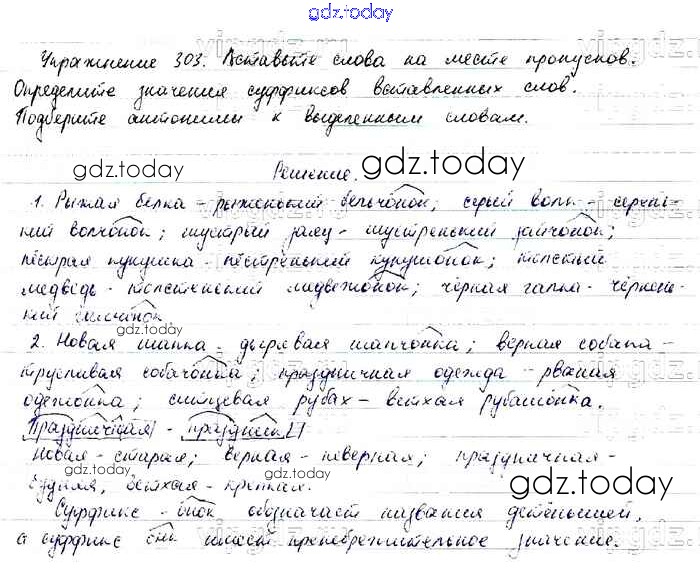 gdz.today
Упражнение 303. Вставьте слова на месте пропусков.
Определите значения суффиксов вставленных слов.
Подберите антонимы к выделенным словам.
gdz.today
gdz.today
Решение.
1. Рыжая белка - рыженький бельчонок; серый волк - серень-
кий волчонок; шустрый заяц - шустренький зайчонок;
пёстрая кукушка - пёстренький кукушонок; толстый
медведь - толстенький медвежонок; чёрная галка - чёрнень-
кий галчонок
gdz.today
2. Новая шапка - дырявая шапчонка; верная собака -
трусливая собачонка; праздничная одежда - рваная
одежонка; ситцевая рубах - ветхая рубашонка.
gdz.today
Праздничная - праздник
Новая - старая; верная - неверная; праздничная -
будняя, ветхая - крепкая.
gdz.today
gdz.today
Суффикс - онок обозначает названия детёнышей,
а суффикс онк имеет пренебрежительное значение.
gdz.today